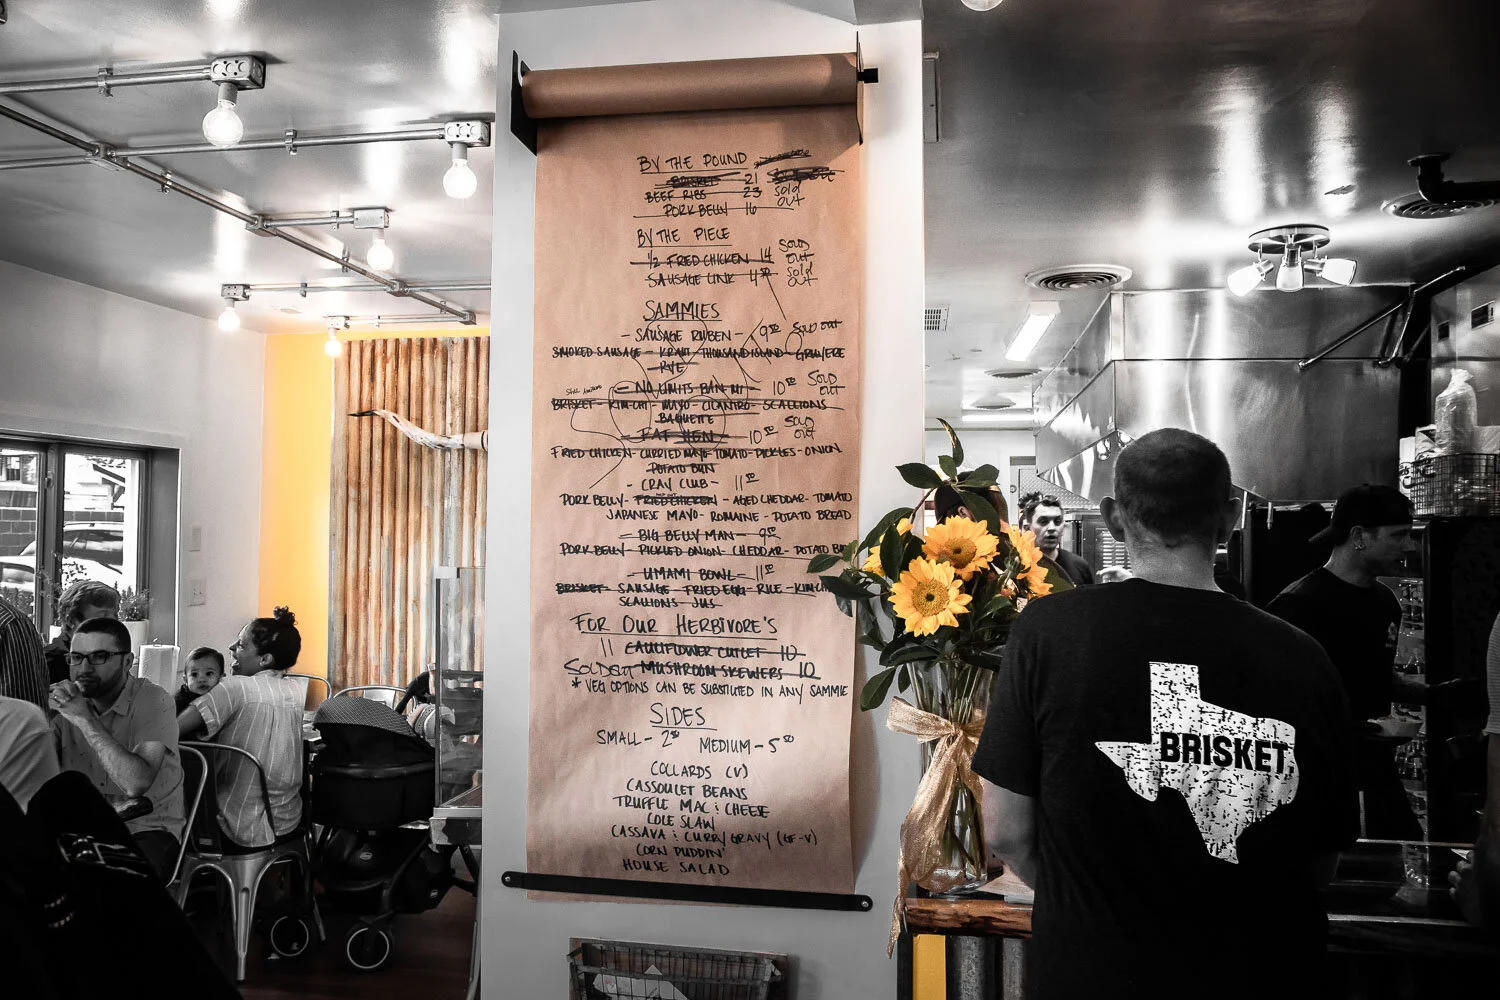 BY THE POUND
BRISKET 21 SOLD OUT
BEEF RIBS 23 SOLD OUT
PORK BELLY 16
BY THE PIECE
1/2 FRIED CHICKEN 14 SOLD OUT
SAUSAGE LINK 4 50 SOLD OUT
SAMMIES
- SAUSAGE RUBEN - 9 50 SOLD OUT
SMOKED SAUSAGE - KRAUT - THOUSAND ISLAND - GRUYERE
RYE
- NO LIMITS BAN MI 10 50 SOLD OUT
BRISKET - KIM-CHI - MAYO - CILANTRO - SCALLIONS
BAGUETTE
- FAT HEN - 10 50 SOLD OUT
FRIED CHICKEN - CURRIED MAYO - TOMATO - PICKLES - ONION
POTATO BUN
- CRAY CLUB - 11 50
PORK BELLY - FRIED CHICKEN - AGED CHEDDAR - TOMATO
JAPANESE MAYO - ROMAINE - POTATO BREAD
- BIG BELLY MAN - 9 50
PORK BELLY - PICKLED ONION - CHEDDAR - POTATO
- UMAMI BOWL - 11 50
BRISKET - SAUSAGE - FRIED EGG - RICE - KIM-CHI
SCALLIONS - JUS
FOR OUR HERBIVORE'S
11 CAULIFLOWER CUTLET 10
SOLD OUT MUSHROOM SKEWERS 10
* VEG OPTIONS CAN BE SUBSTITUTED IN ANY SAMMIE
SIDES
SMALL - 2 50 MEDIUM - 5 50
COLLARDS (V)
CASSOULET BEANS
TRUFFLE MAC & CHEESE
COLE SLAW
CASSAVA & CURRY GRAVY (GF-V)
CORN PUDDIN'
HOUSE SALAD
BRISKET.